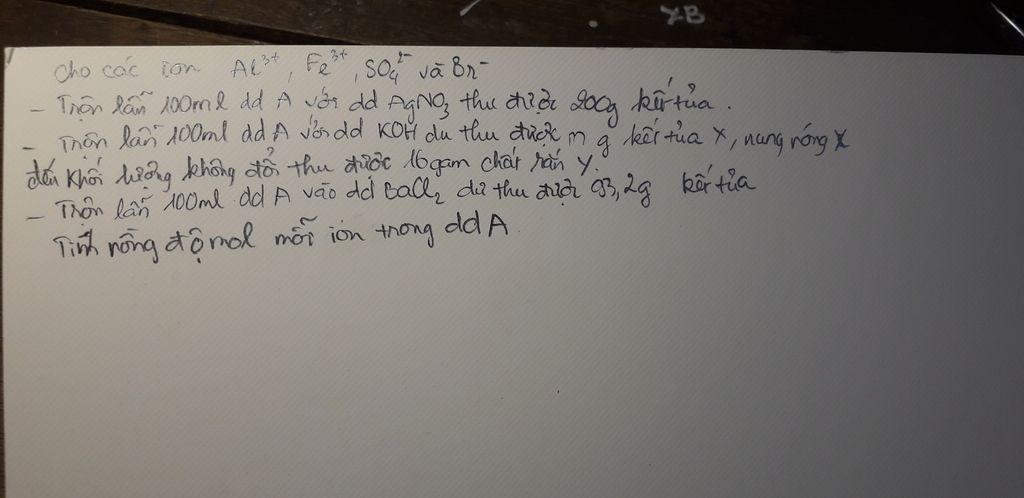 YB
Cho các ion Al³⁺, Fe³⁺, SO₄²⁻ và Br⁻
- Trộn lẫn 100ml dd A với dd AgNO₃ thu được 200g kết tủa.
- Trộn lẫn 100ml dd A với dd KOH dư thu được m g kết tủa X, nung nóng X
đến khối lượng không đổi thu được 16gam chất rắn Y.
- Trộn lẫn 100ml dd A vào dd BaCl₂ dư thu được 93,2g kết tủa
Tính nồng độ mol mỗi ion trong dd A.